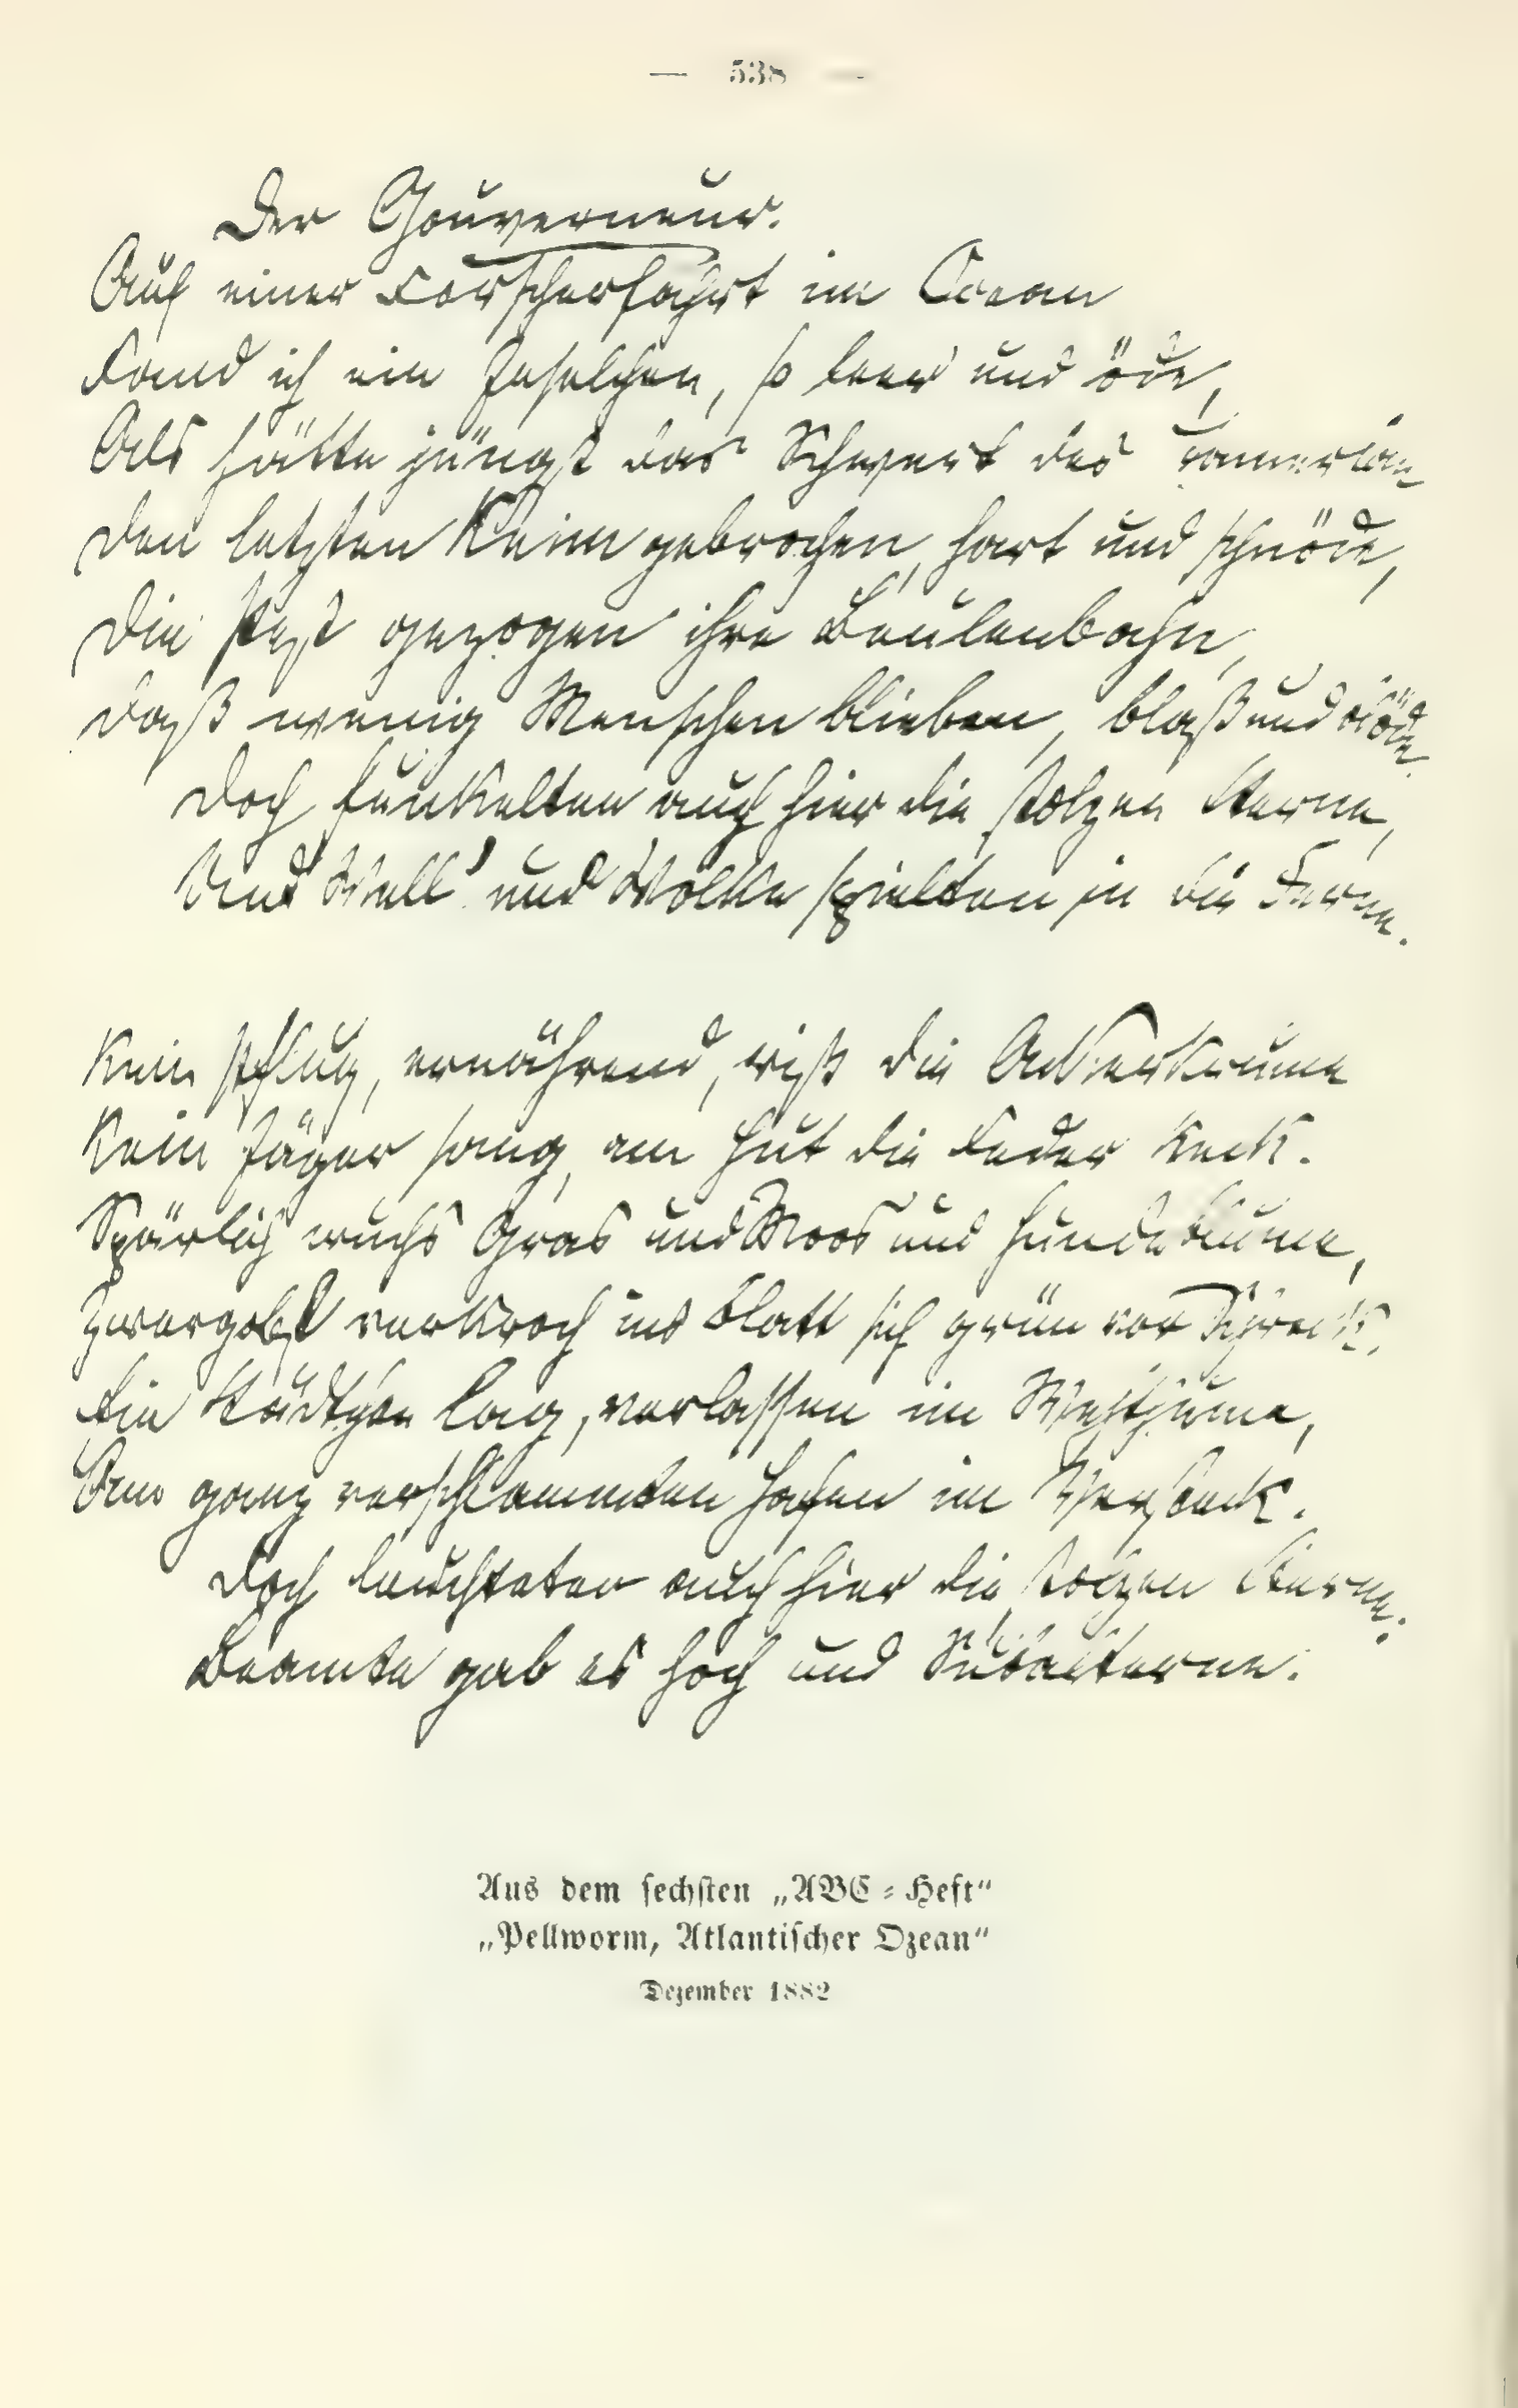 — 538 —
Der Gouverneur.
Auf einer Forscherfahrt im Ocean
Fand ich ein Inselchen, so leer und öde,
Als hätte jüngst das Schwert des Tamerlan
Den letzten Keim gebrochen, hart und schnöde,
Die Pest gezogen ihre Beulenbahn,
Daß wenig Menschen blieben, blaß und blöde.
Doch funkelten auch hier die stolzen Sterne,
Und Well' und Wolke spielten in die Ferne.
Kein Pflug, ernährend, riß die Ackerkrume
Kein Jäger sang, am Hut die Feder keck.
Spärlich wuchs Gras und Moos und Hundeblume,
Zwergobst verkroch ins Blatt sich grün vor Schreck.
Ein Städtchen lag, verlassen im
Am ganz verschlammten Hafen im Versteck.
Doch leuchteten auch hier die stolzen Sterne.
Beamte gab es hoch und Subalterne.
Aus dem sechsten „ABC-Heft“
„Pellworm, Atlantischer Ozean“
Dezember 1882